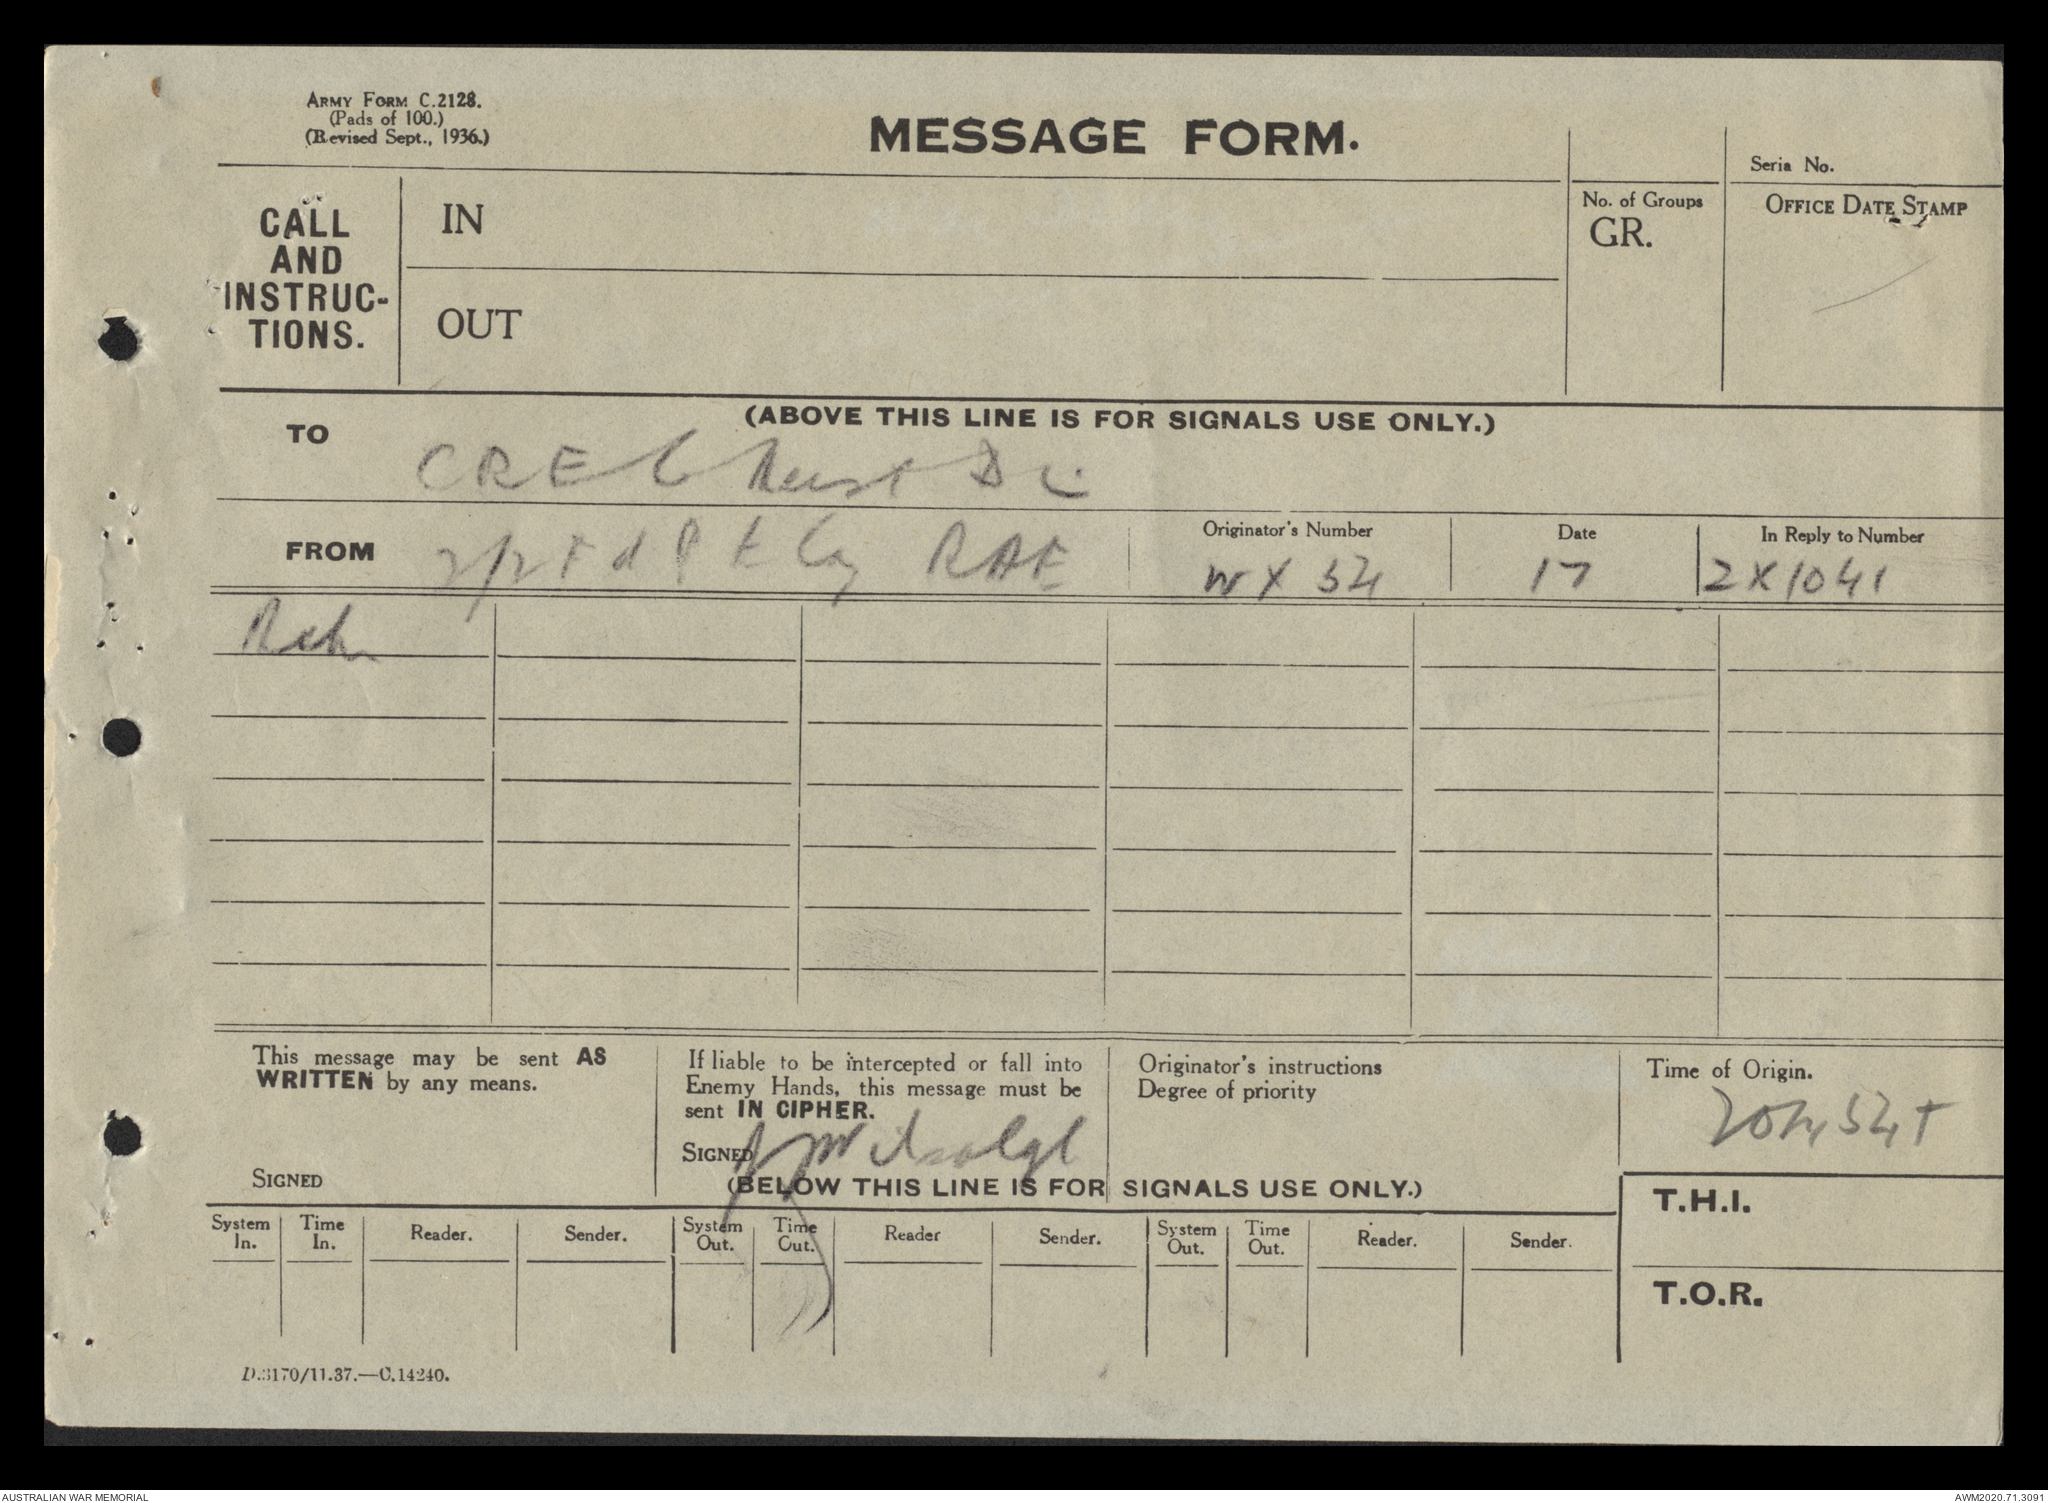 ARMY FORM C.2128.
(Pads of 100.)
(Revised Sept., 1936.)
MESSAGE FORM.
Seria No.
CALL
AND
INSTRUC-
TIONS.
IN
OUT
No. of Groups
GR.
OFFICE DATE STAMP
(ABOVE THIS LINE IS FOR SIGNALS USE ONLY.)
TO CRE 6 Aust Div
FROM 2/2 Fd Pk Coy RAE
Originator's Number
WX 34
Date
17
In Reply to Number
ZX1041
This message may be sent AS
WRITTEN by any means.
SIGNED
If liable to be intercepted or fall into
Enemy Hands, this message must be
sent IN CIPHER.
SIGNED
Originator's instructions
Degree of priority
Time of Origin.
(BELOW THIS LINE IS FOR SIGNALS USE ONLY.)
T.H.I.
T.O.R.
System In. Time In. Reader. Sender. System Out. Time Out. Reader Sender. System Out. Time Out. Reader. Sender.
D.3170/11.37.—C.14240.
AUSTRALIAN WAR MEMORIAL
AWM2020.71.3091